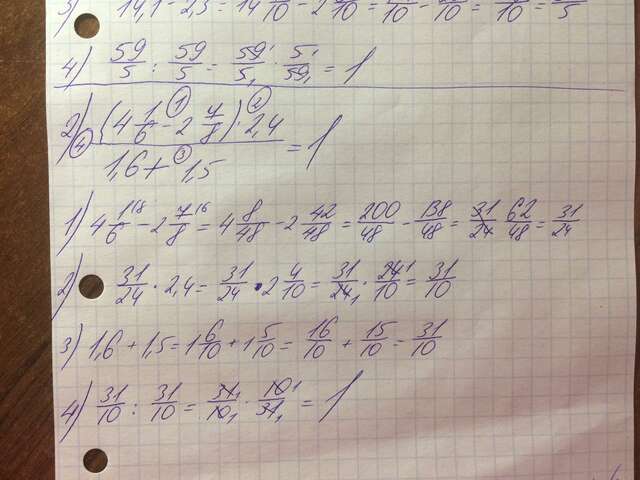 3) 14,1 - 2,3 = 14 1/10 - 2
4) 59/5 : 59/5 = 59/5 · 5/59 = 1
2) (4 1/6 - 2 7/8) · 2,4 / 1,6 + 1,5 = 1
1) 4 1/6 - 2 7/8 = 4 8/48 - 2 42/48 = 200/48 - 138/48 = 31/24 62/48 = 31/24
2) 31/24 · 2,4 = 31/24 · 2 4/10 = 31/24 · 24/10 = 31/10
3) 1,6 + 1,5 = 1 6/10 + 1 5/10 = 16/10 + 15/10 = 31/10
4) 31/10 : 31/10 = 31/10 · 10/31 = 1